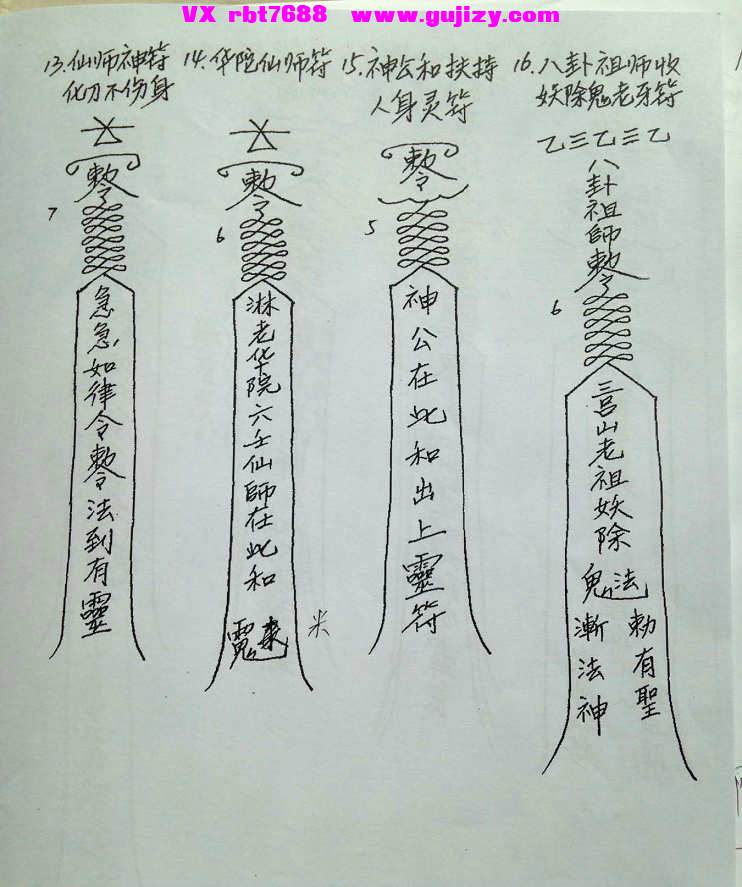 VX rbt7688 www.gujizy.com
13.仙师神符
化刀不伤身
敕令
7
急急如律令敕令法到有靈
14.华陀仙师符
敕令
6
淋老华院六壬仙師在此和
米
15.神公和扶持
人身灵符
敕令
5
神公在此和出上靈符
16.八卦祖师收
妖除鬼老牙符
乙三乙三乙
八卦祖師敕令
6
山老祖妖除
鬼法
勅有聖
漸法神